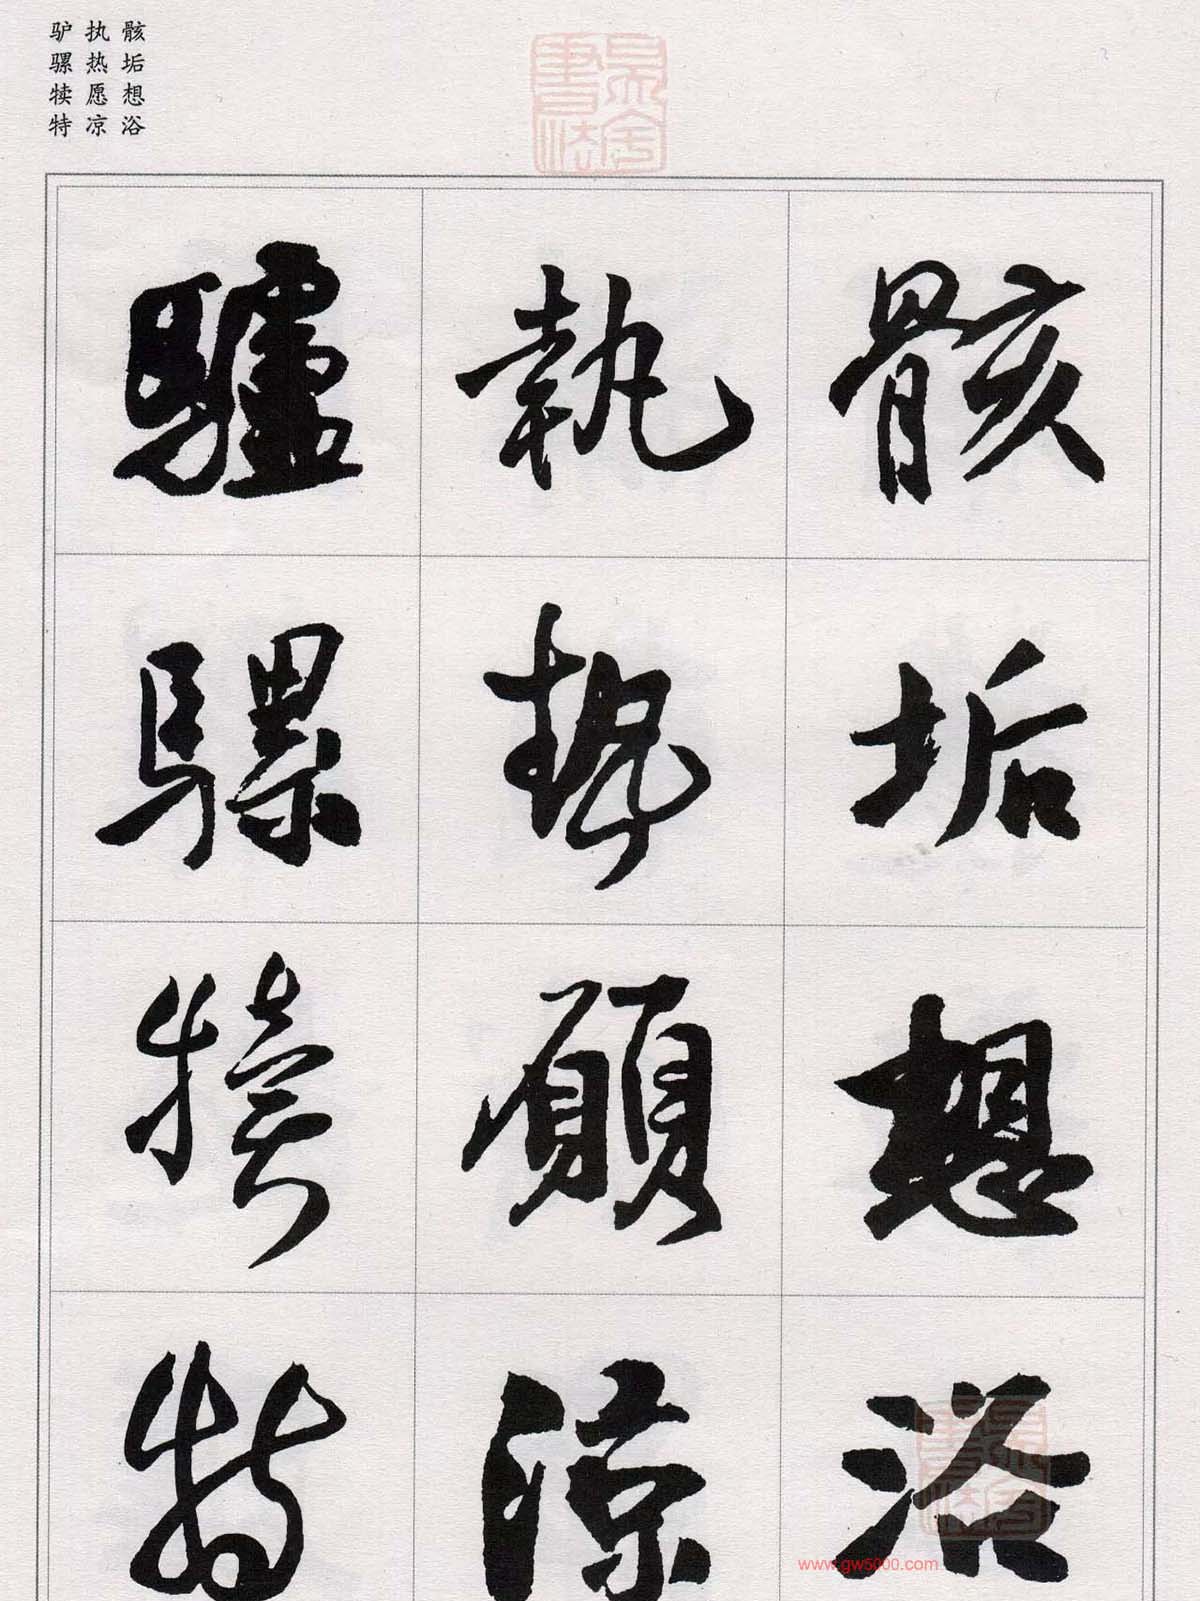 骸垢想浴
执热愿凉
驴骡犊特
骸垢想浴
執熱願凉
驢騾犢特
www.gw5000.com